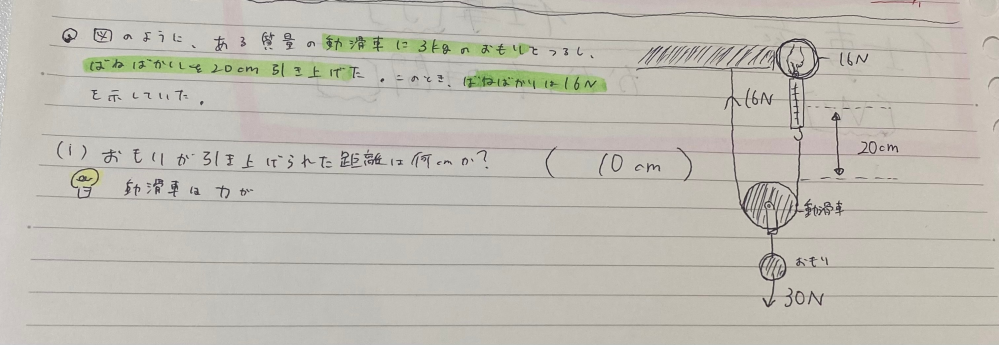 図のように、ある質量の動滑車に3kgのおもりをつるし、
ばねばかりを20cm引き上げた。このとき、ばねばかりは16N
を示していた。
(1) おもりが引き上げられた距離は何cmか? ( 10cm )
動滑車は力が
16N
16N
20cm
動滑車
おもり
30N